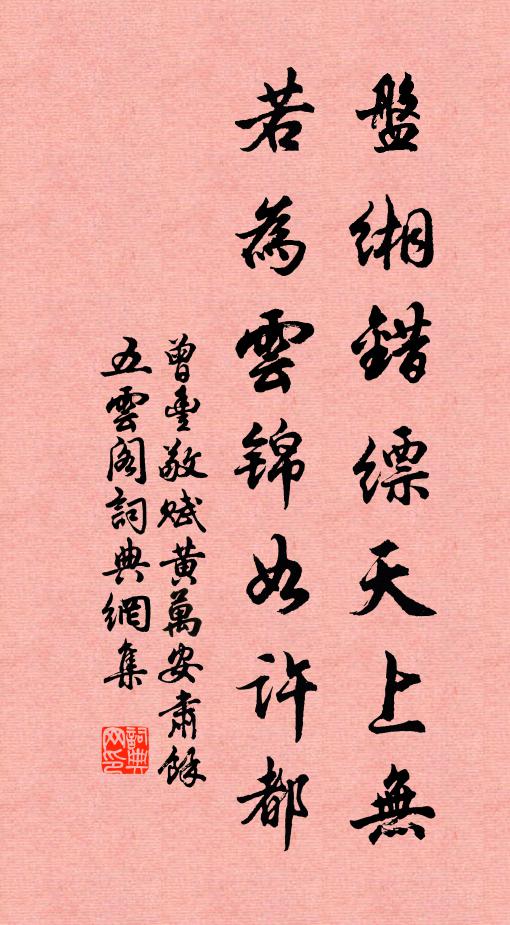 盤緗錯縹天上無
若為雲錦如許都
曾豐敬賦黃萬安肅餘
五雲閣詞典網集
詞典網印